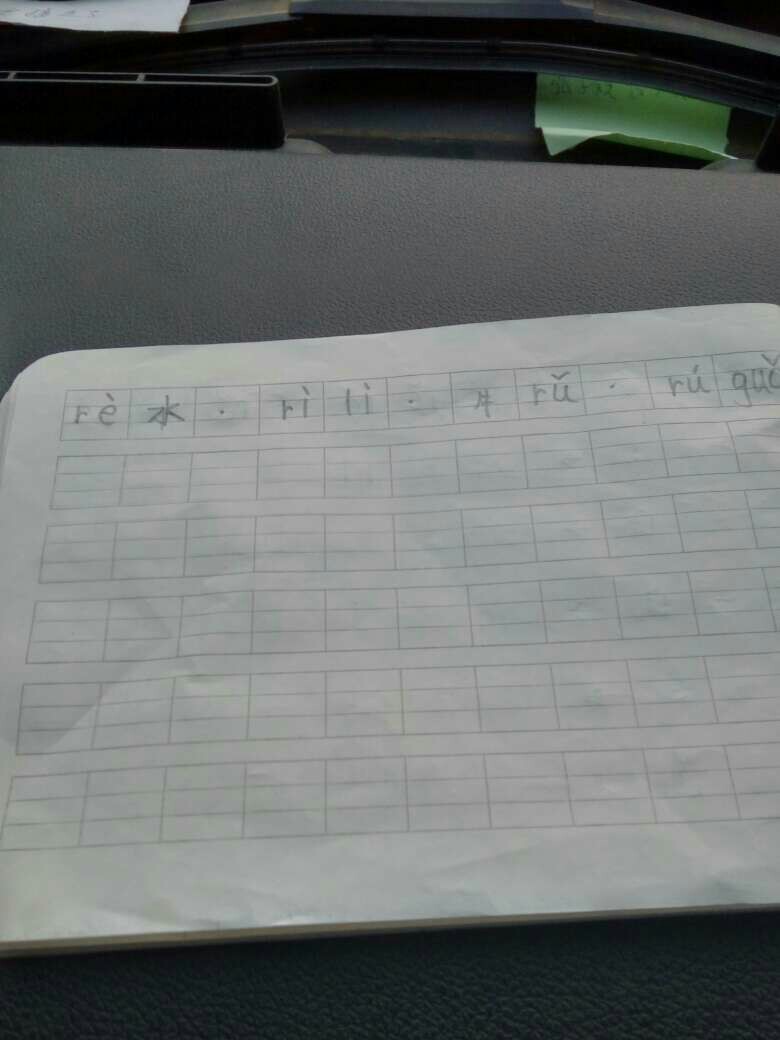 rè 水 · rì lì · 牛 rǔ · rú guǒ